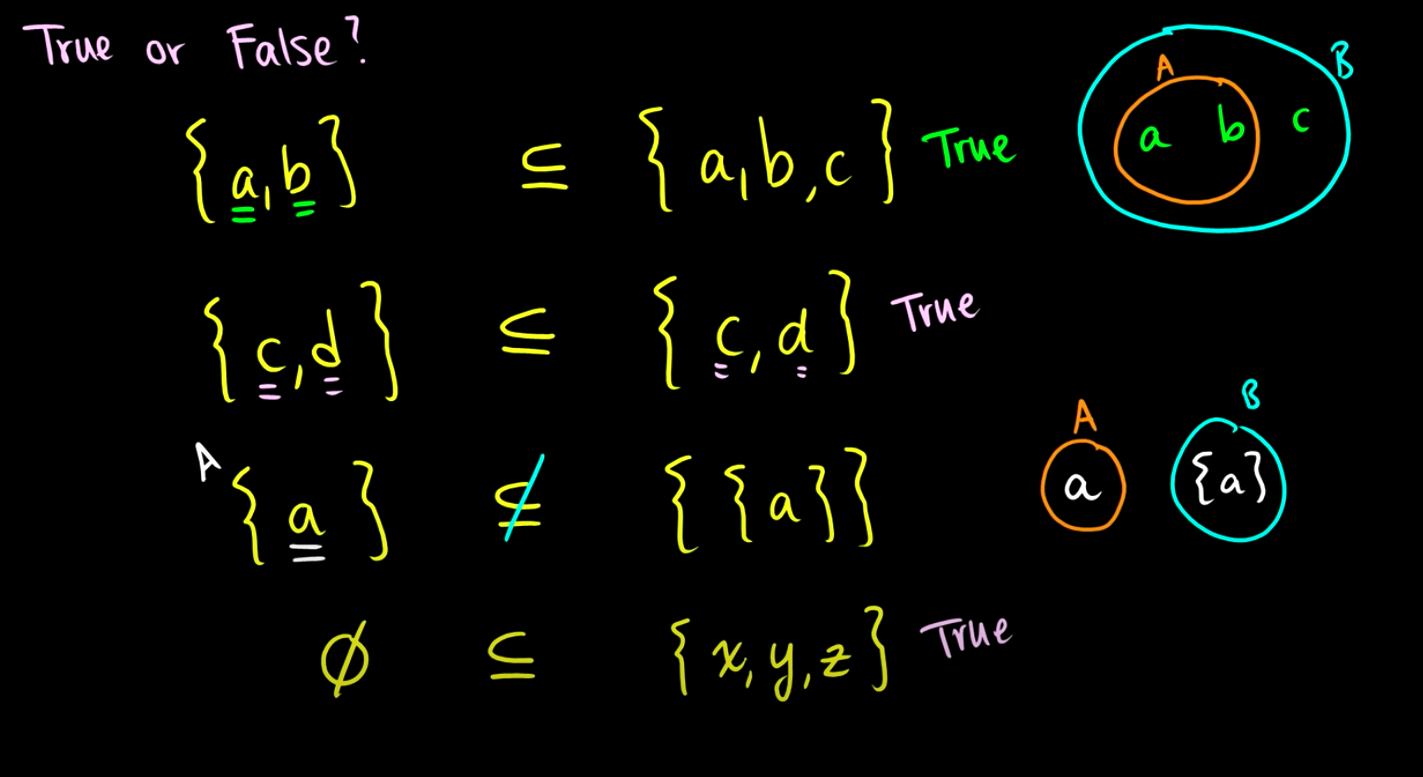 True or False?
{a,b} ⊆ {a,b,c} True
A B
a b c
{c,d} ⊆ {c,d} True
A {a} ⊈ {{a}}
A B
a {a}
∅ ⊆ {x,y,z} True